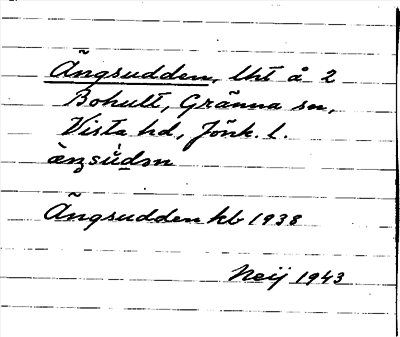 Ängsudden, lht å 2
Bohult, Gränna sn,
Vista hd, Jönk. l.
Ängsudden kb 1938
Neij 1943